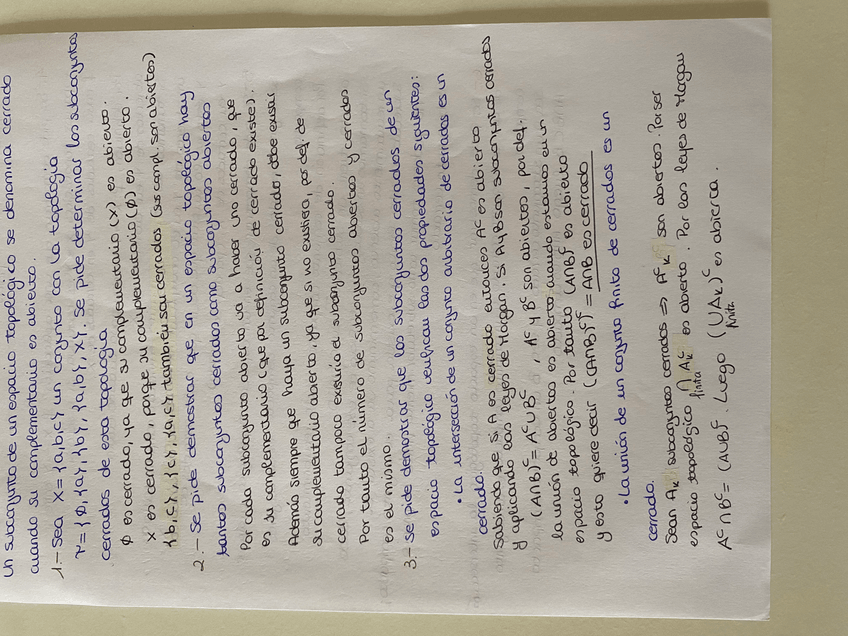 Un subconjunto de un espacio topológico se denomina cerrado
cuando su complementario es abierto.
1.- Sea X = {a,b,c} un conjunto con la topología
τ = {∅, {a}, {b}, {a,b}, X}. Se pide determinar los subconjuntos
cerrados de esta topología
∅ es cerrado, ya que su complementario (X) es abierto.
X es cerrado, porque su complementario (∅) es abierto.
{b,c}, {c}, {a,c} también son cerrados (sus compl. son abiertos)
2.- Se pide demostrar que en un espacio topológico hay
tantos subconjuntos cerrados como subconjuntos abiertos
Por cada subconjunto abierto va a haber uno cerrado, que
es su complementario (que por definición de cerrado existe).
Además siempre que haya un subconjunto cerrado, debe existir
su complementario abierto, ya que si no existiera, por def. de
cerrado tampoco existiría el subconjunto cerrado.
Por tanto el número de subconjuntos abiertos y cerrados
es el mismo.
3.- Se pide demostrar que los subconjuntos cerrados de un
espacio topológico verifican las dos propiedades siguientes:
• La intersección de un conjunto arbitrario de cerrados es un
cerrado.
Sabiendo que si A es cerrado entonces Aᶜ es abierto
y aplicando las leyes de Morgan. Si A y B son subconjuntos cerrados
(A∩B)ᶜ = Aᶜ∪Bᶜ, Aᶜ y Bᶜ son abiertos, por def.
la unión de abiertos es abierto cuando estamos en un
espacio topológico. Por tanto (A∩B)ᶜ es abierto
y esto quiere decir ((A∩B)ᶜ)ᶜ = A∩B es cerrado
• La unión de un conjunto finito de cerrados es un
cerrado.
Sean Aₖ subconjuntos cerrados ⇒ Aᶜₖ son abiertos. Por ser
espacio topológico ∩ Aₖᶜ es abierto. Por las leyes de Morgan
finita
Aᶜ∩Bᶜ = (A∪B)ᶜ. Luego (∪Aₖ)ᶜ es abierta.
finita